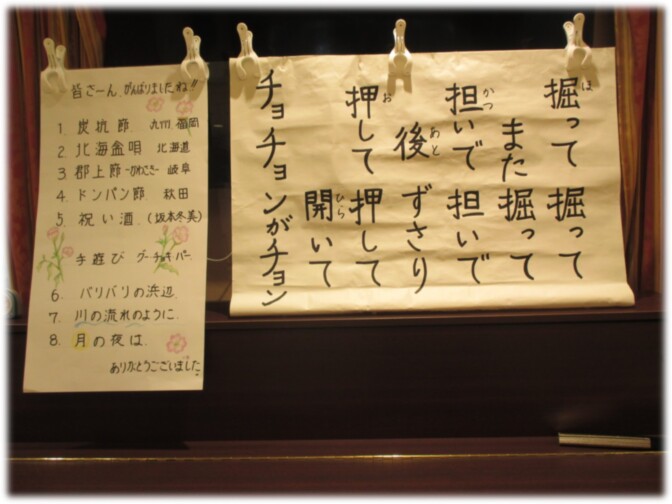 皆さーん、がんばりましたね!!
1. 炭坑節 九州 福岡
2. 北海盆唄 北海道
3. 郡上節-かわさき- 岐阜
4. ドンパン節 秋田
5. 祝い酒 (坂本冬美)
手遊び グーチョキパー
6. バリバリの浜辺
7. 川の流れのように
8. 月の夜は
ありがとうございました
掘って 掘って
また 掘って
担いで 担いで
後 ずさり
押して 押して
開いて
チョチョンがチョン
ほ
かつ
あと
お
ひら